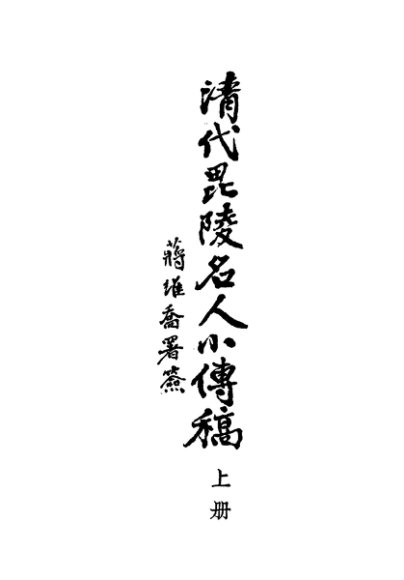 清代毘陵名人小傳稿
上册
蔣維喬署簽